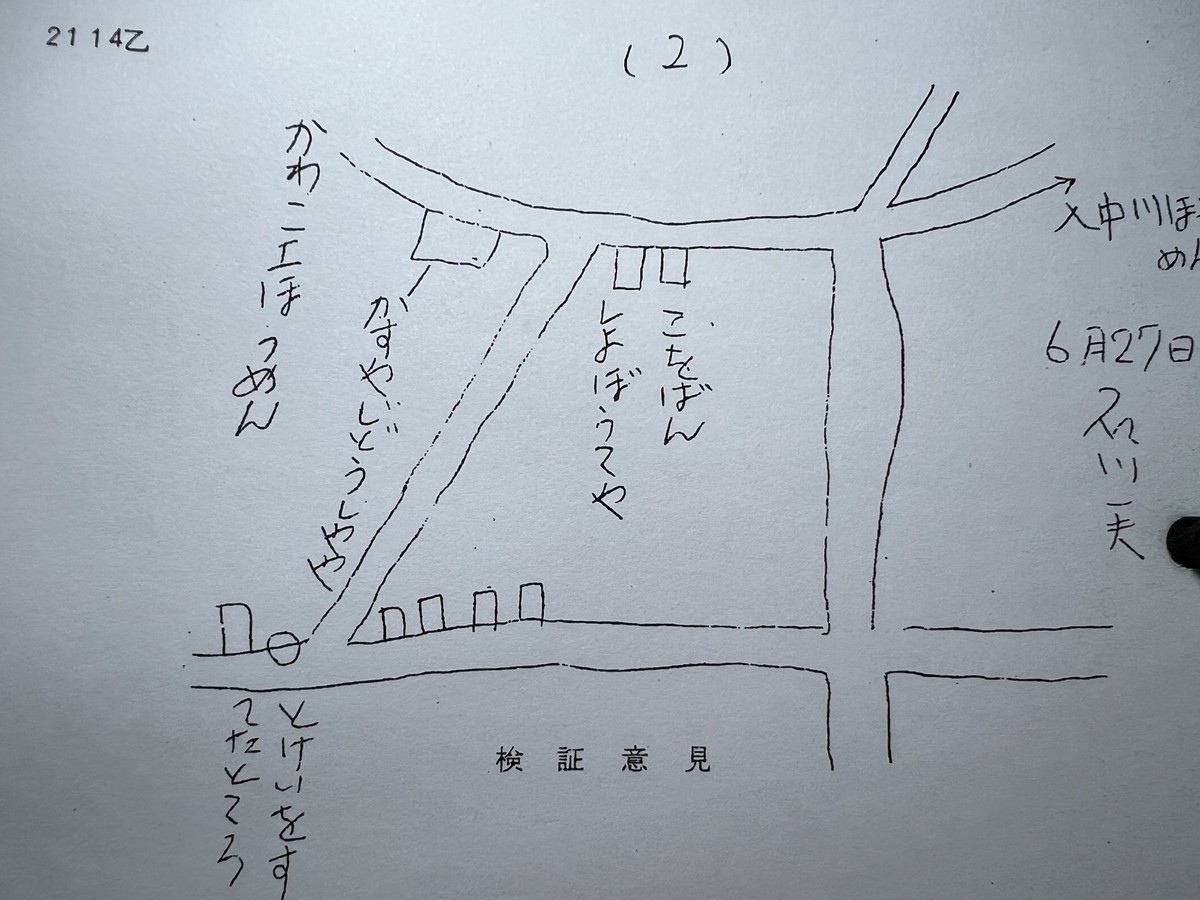 2114乙
(2)
入中川ほ
めん
6月27日
石川一夫
こをばん
しよぼうてや
かすやじどうしやや
かわこエほうめん
とけいをす
てたところ
検証意見